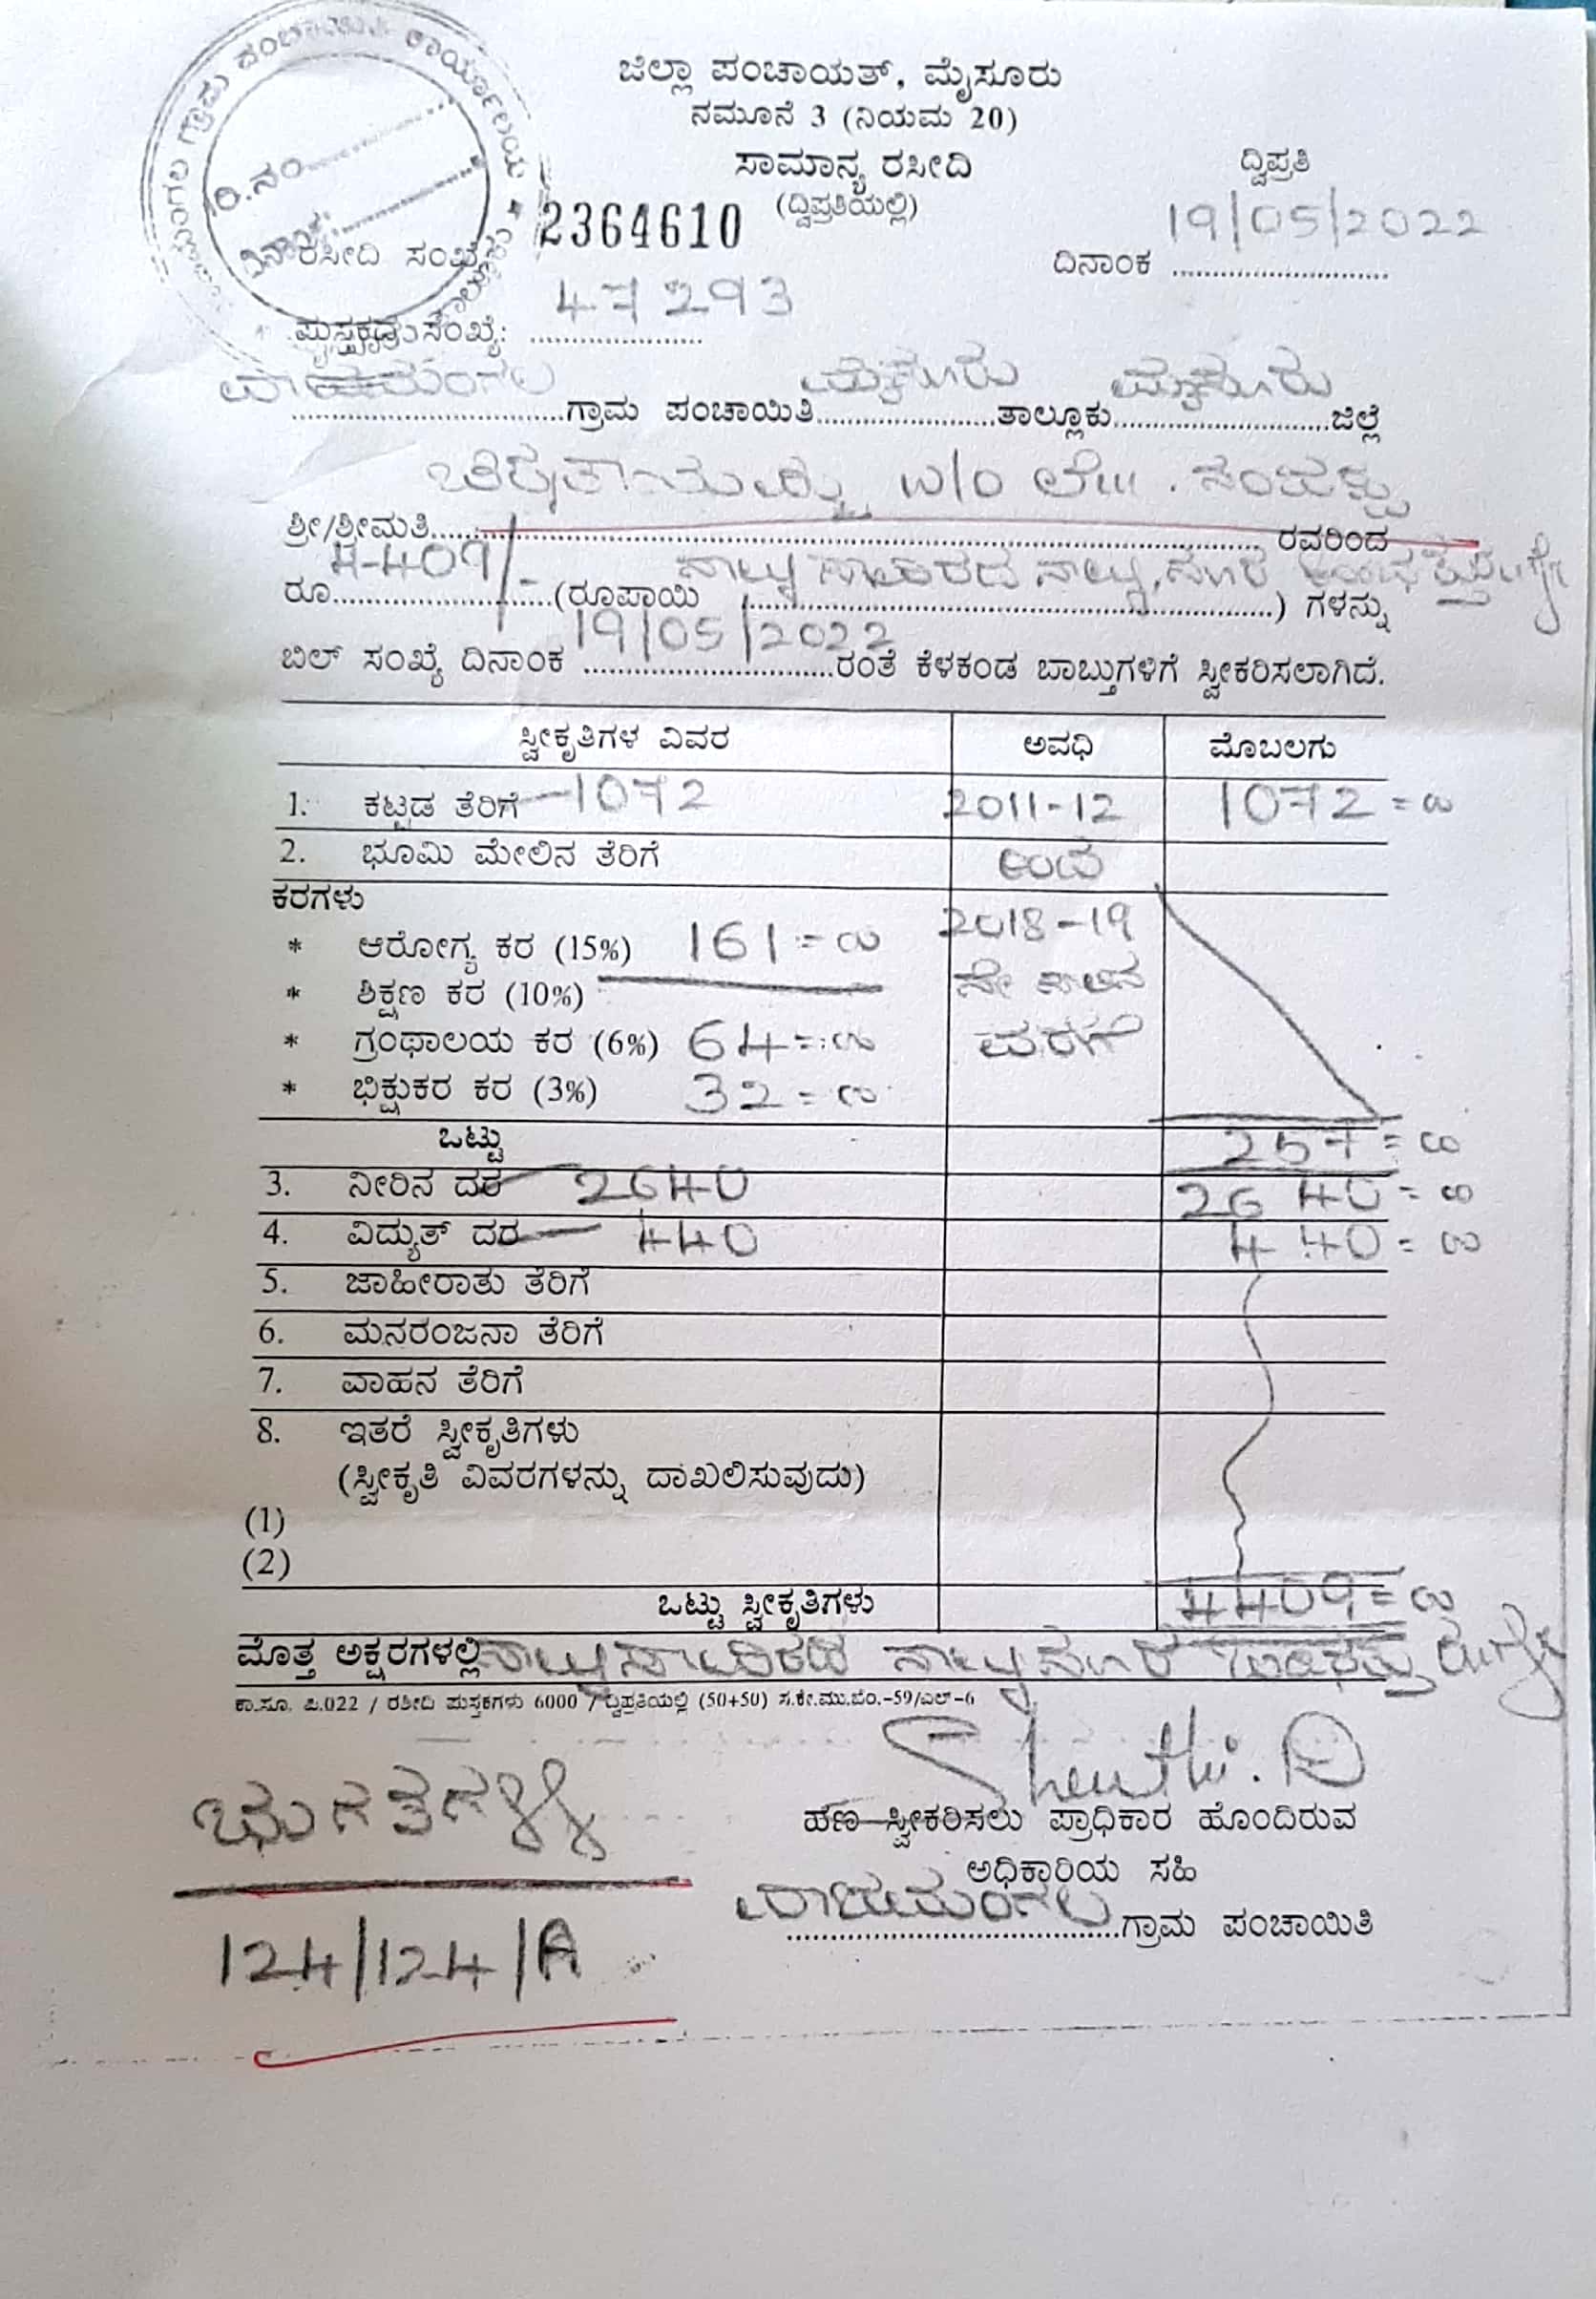 ಗ್ರಾಮ ಪಂಚಾಯಿತಿ ಕಾರ್ಯಾಲಯ
ರಿ.ನಂ
ದಿನಾಂಕ
ಜಿಲ್ಲಾ ಪಂಚಾಯತ್, ಮೈಸೂರು
ನಮೂನೆ 3 (ನಿಯಮ 20)
ಸಾಮಾನ್ಯ ರಸೀದಿ ದ್ವಿಪ್ರತಿ
(ದ್ವಿಪ್ರತಿಯಲ್ಲಿ)
ರಸೀದಿ ಸಂಖ್ಯೆ 2364610 ದಿನಾಂಕ 19/05/2022
ಪುಸ್ತಕದ ಸಂಖ್ಯೆ: 47293
ಗ್ರಾಮ ಪಂಚಾಯಿತಿ ಮೈಸೂರು ತಾಲ್ಲೂಕು ಮೈಸೂರು ಜಿಲ್ಲೆ
ಶ್ರೀ/ಶ್ರೀಮತಿ W/O ಲೇ||. ರವರಿಂದ
ರೂ 4409/- (ರೂಪಾಯಿ ನಾಲ್ಕು ಸಾವಿರದ ನಾಲ್ಕು ನೂರ ಒಂಭತ್ತು) ಗಳನ್ನು
ಬಿಲ್ ಸಂಖ್ಯೆ ದಿನಾಂಕ 19/05/2022 ರಂತೆ ಕೆಳಕಂಡ ಬಾಬ್ತುಗಳಿಗೆ ಸ್ವೀಕರಿಸಲಾಗಿದೆ.
ಸ್ವೀಕೃತಿಗಳ ವಿವರ ಅವಧಿ ಮೊಬಲಗು
1. ಕಟ್ಟಡ ತೆರಿಗೆ - 1072 2011-12 1072=00
2. ಭೂಮಿ ಮೇಲಿನ ತೆರಿಗೆ ಇಂದ
ಕರಗಳು
* ಆರೋಗ್ಯ ಕರ (15%) 161=00 2018-19
* ಶಿಕ್ಷಣ ಕರ (10%) ನೇ ಸಾಲಿನ
* ಗ್ರಂಥಾಲಯ ಕರ (6%) 64=00 ವರೆಗೆ
* ಭಿಕ್ಷುಕರ ಕರ (3%) 32=00
ಒಟ್ಟು 257=00
3. ನೀರಿನ ದರ - 2640 2640=00
4. ವಿದ್ಯುತ್ ದರ - 440 440=00
5. ಜಾಹೀರಾತು ತೆರಿಗೆ
6. ಮನರಂಜನಾ ತೆರಿಗೆ
7. ವಾಹನ ತೆರಿಗೆ
8. ಇತರೆ ಸ್ವೀಕೃತಿಗಳು
(ಸ್ವೀಕೃತಿ ವಿವರಗಳನ್ನು ದಾಖಲಿಸುವುದು)
(1)
(2)
ಒಟ್ಟು ಸ್ವೀಕೃತಿಗಳು 4409=00
ಮೊತ್ತ ಅಕ್ಷರಗಳಲ್ಲಿ ನಾಲ್ಕು ಸಾವಿರದ ನಾಲ್ಕು ನೂರ ಒಂಭತ್ತು
ಕಾ.ಸೂ. ಪಿ.022 / ರಶೀದಿ ಪುಸ್ತಕಗಳು 6000 / ದ್ವಿಪ್ರತಿಯಲ್ಲಿ (50+50) ಸ.ಕೇ.ಮು.ಬೆಂ.-59/ಎಲ್-6
ಹಣ ಸ್ವೀಕರಿಸಲು ಪ್ರಾಧಿಕಾರ ಹೊಂದಿರುವ
ಅಧಿಕಾರಿಯ ಸಹಿ
ಗ್ರಾಮ ಪಂಚಾಯಿತಿ
124/124/A